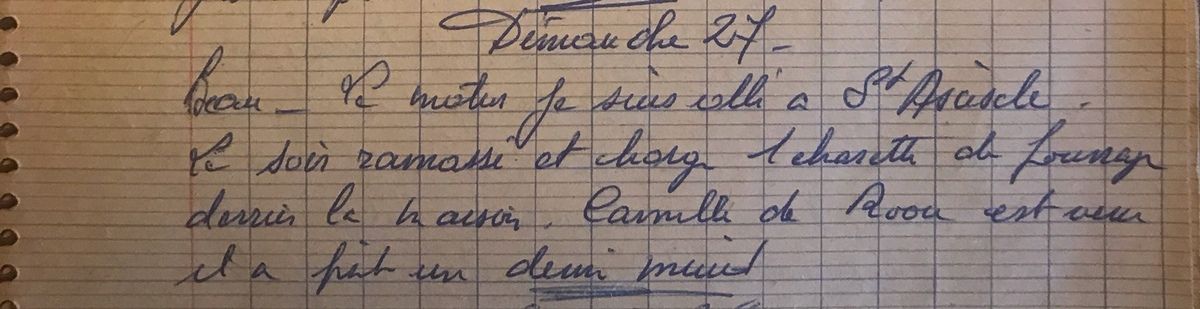 Dimanche 27 -
Beau - Le matin je suis allé a St
Le soir ramassé et chargé 1 charette de fourrage
derrière la maison. Camille de est venu
et a fait un demi